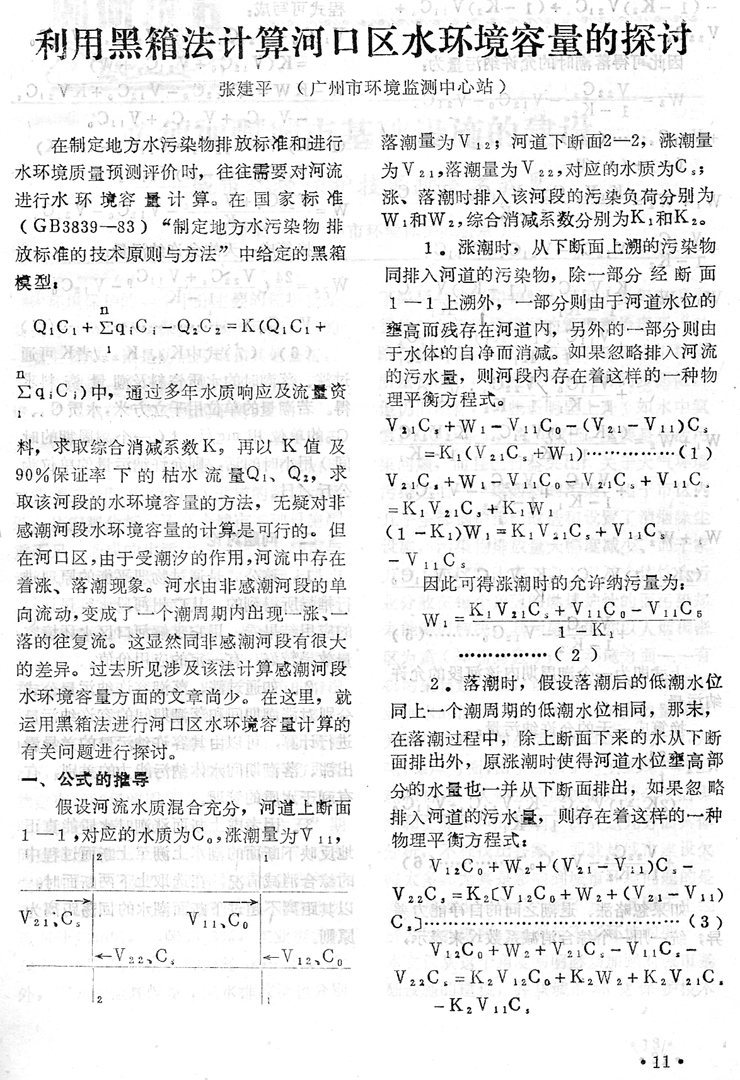 利用黑箱法计算河口区水环境容量的探讨
张建平 (广州市环境监测中心站)
在制定地方水污染物排放标准和进行
水环境质量预测评价时，往往需要对河流
进行水环境容量计算。在国家标准
(GB3839—83)“制定地方水污染物排
放标准的技术原则与方法”中给定的黑箱
模型：
Q₁C₁+ΣqᵢCᵢ−Q₂C₂=K(Q₁C₁+
ΣqᵢCᵢ)中，通过多年水质响应及流量资
料，求取综合消减系数K，再以K值及
90%保证率下的枯水流量Q₁、Q₂，求
取该河段的水环境容量的方法，无疑对非
感潮河段水环境容量的计算是可行的。但
在河口区,由于受潮汐的作用,河流中存在
着涨、落潮现象。河水由非感潮河段的单
向流动,变成了一个潮周期内出现一涨、一
落的往复流。这显然同非感潮河段有很大
的差异。过去所见涉及该法计算感潮河段
水环境容量方面的文章尚少。在这里，就
运用黑箱法进行河口区水环境容量计算的
有关问题进行探讨。
一、公式的推导
假设河流水质混合充分，河道上断面
1—1,对应的水质为C₀,涨潮量为V₁₁,
2 1
V₂₁、Cₛ V₁₁、C₀
←V₂₂、Cₛ ←V₁₂、C₀
2 1
落潮量为V₁₂；河道下断面2—2，涨潮量
为V₂₁,落潮量为V₂₂,对应的水质为Cₛ；
涨、落潮时排入该河段的污染负荷分别为
W₁和W₂,综合消减系数分别为K₁和K₂。
1。涨潮时，从下断面上溯的污染物
同排入河道的污染物，除一部分经断面
1—1上溯外，一部分则由于河道水位的
壅高而残存在河道内，另外的一部分则由
于水体的自净而消减。如果忽略排入河流
的污水量，则河段内存在着这样的一种物
理平衡方程式。
V₂₁Cₛ+W₁−V₁₁C₀−(V₂₁−V₁₁)Cₛ
=K₁(V₂₁Cₛ+W₁)……………(1)
V₂₁Cₛ+W₁−V₁₁C₀−V₂₁Cₛ+V₁₁Cₛ
=K₁V₂₁Cₛ+K₁W₁
(1−K₁)W₁=K₁V₂₁Cₛ+V₁₁C₀
−V₁₁Cₛ
因此可得涨潮时的允许纳污量为：
W₁=(K₁V₂₁Cₛ+V₁₁C₀−V₁₁Cₛ)/(1−K₁)
……………(2)
2。落潮时，假设落潮后的低潮水位
同上一个潮周期的低潮水位相同，那末，
在落潮过程中，除上断面下来的水从下断
面排出外，原涨潮时使得河道水位壅高部
分的水量也一并从下断面排出，如果忽略
排入河道的污水量，则存在着这样的一种
物理平衡方程式：
V₁₂C₀+W₂+(V₂₁−V₁₁)Cₛ−
V₂₂Cₛ=K₂[V₁₂C₀+W₂+(V₂₁−V₁₁)
Cₛ]…………………………(3)
V₁₂C₀+W₂+V₂₁Cₛ−V₁₁Cₛ−
V₂₂Cₛ=K₂V₁₂C₀+K₂W₂+K₂V₂₁Cₛ
−K₂V₁₁Cₛ
·11·